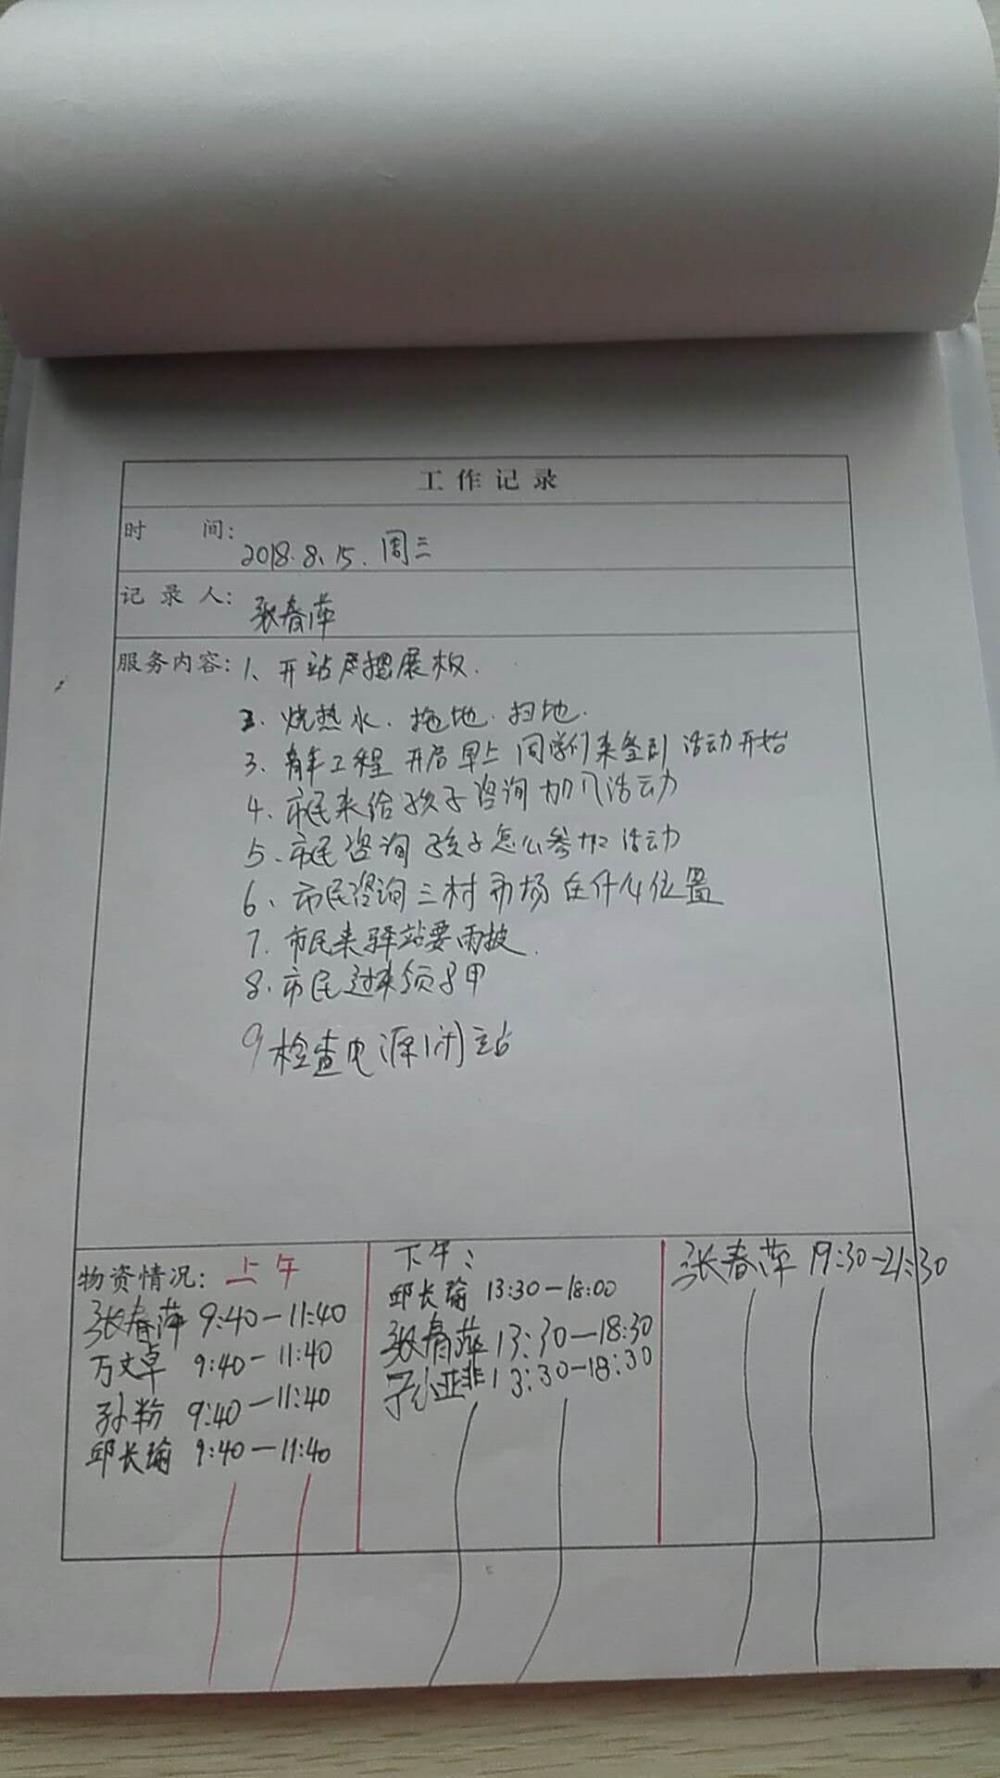 工作记录
时 间: 2018.8.15.周三
记录人: 张春萍
服务内容: 1、开站 摆展板.
2.烧热水.拖地.扫地.
3.青年工程 开启 早上 同学们来签到 活动开始
4.市民来给孩子咨询加入活动
5、市民咨询孩子怎么参加活动
6、市民咨询三村市场在什么位置
7.市民来驿站要雨披.
8.市民过来领马甲
9检查电源闭站
物资情况: 上午
张春萍 9:40-11:40
万文卓 9:40-11:40
孙粉 9:40-11:40
邱长瑜 9:40-11:40
下午:
邱长瑜 13:30-18:00
张春萍 13:30-18:30
13:30-18:30
张春萍 19:30-21:30